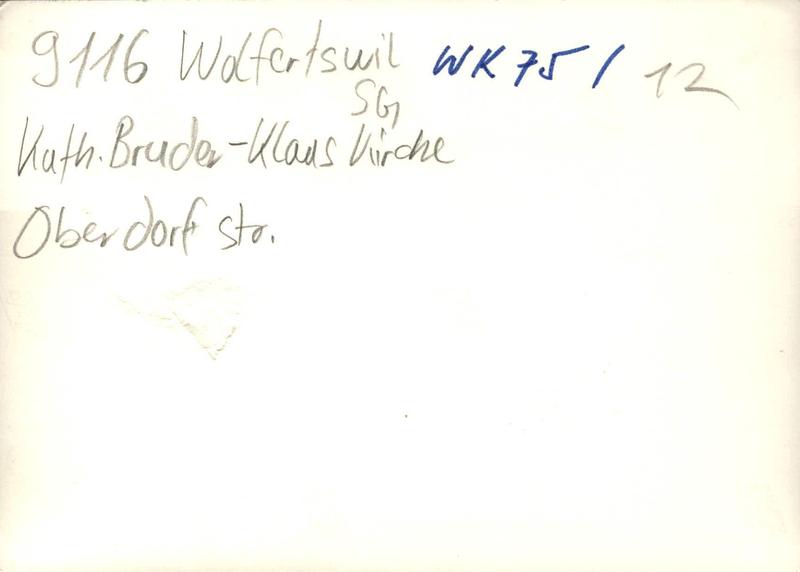 9116 Wolfertswil WK75/ 12
SG
Kath. Bruder-Klaus Kirche
Oberdorfstr.